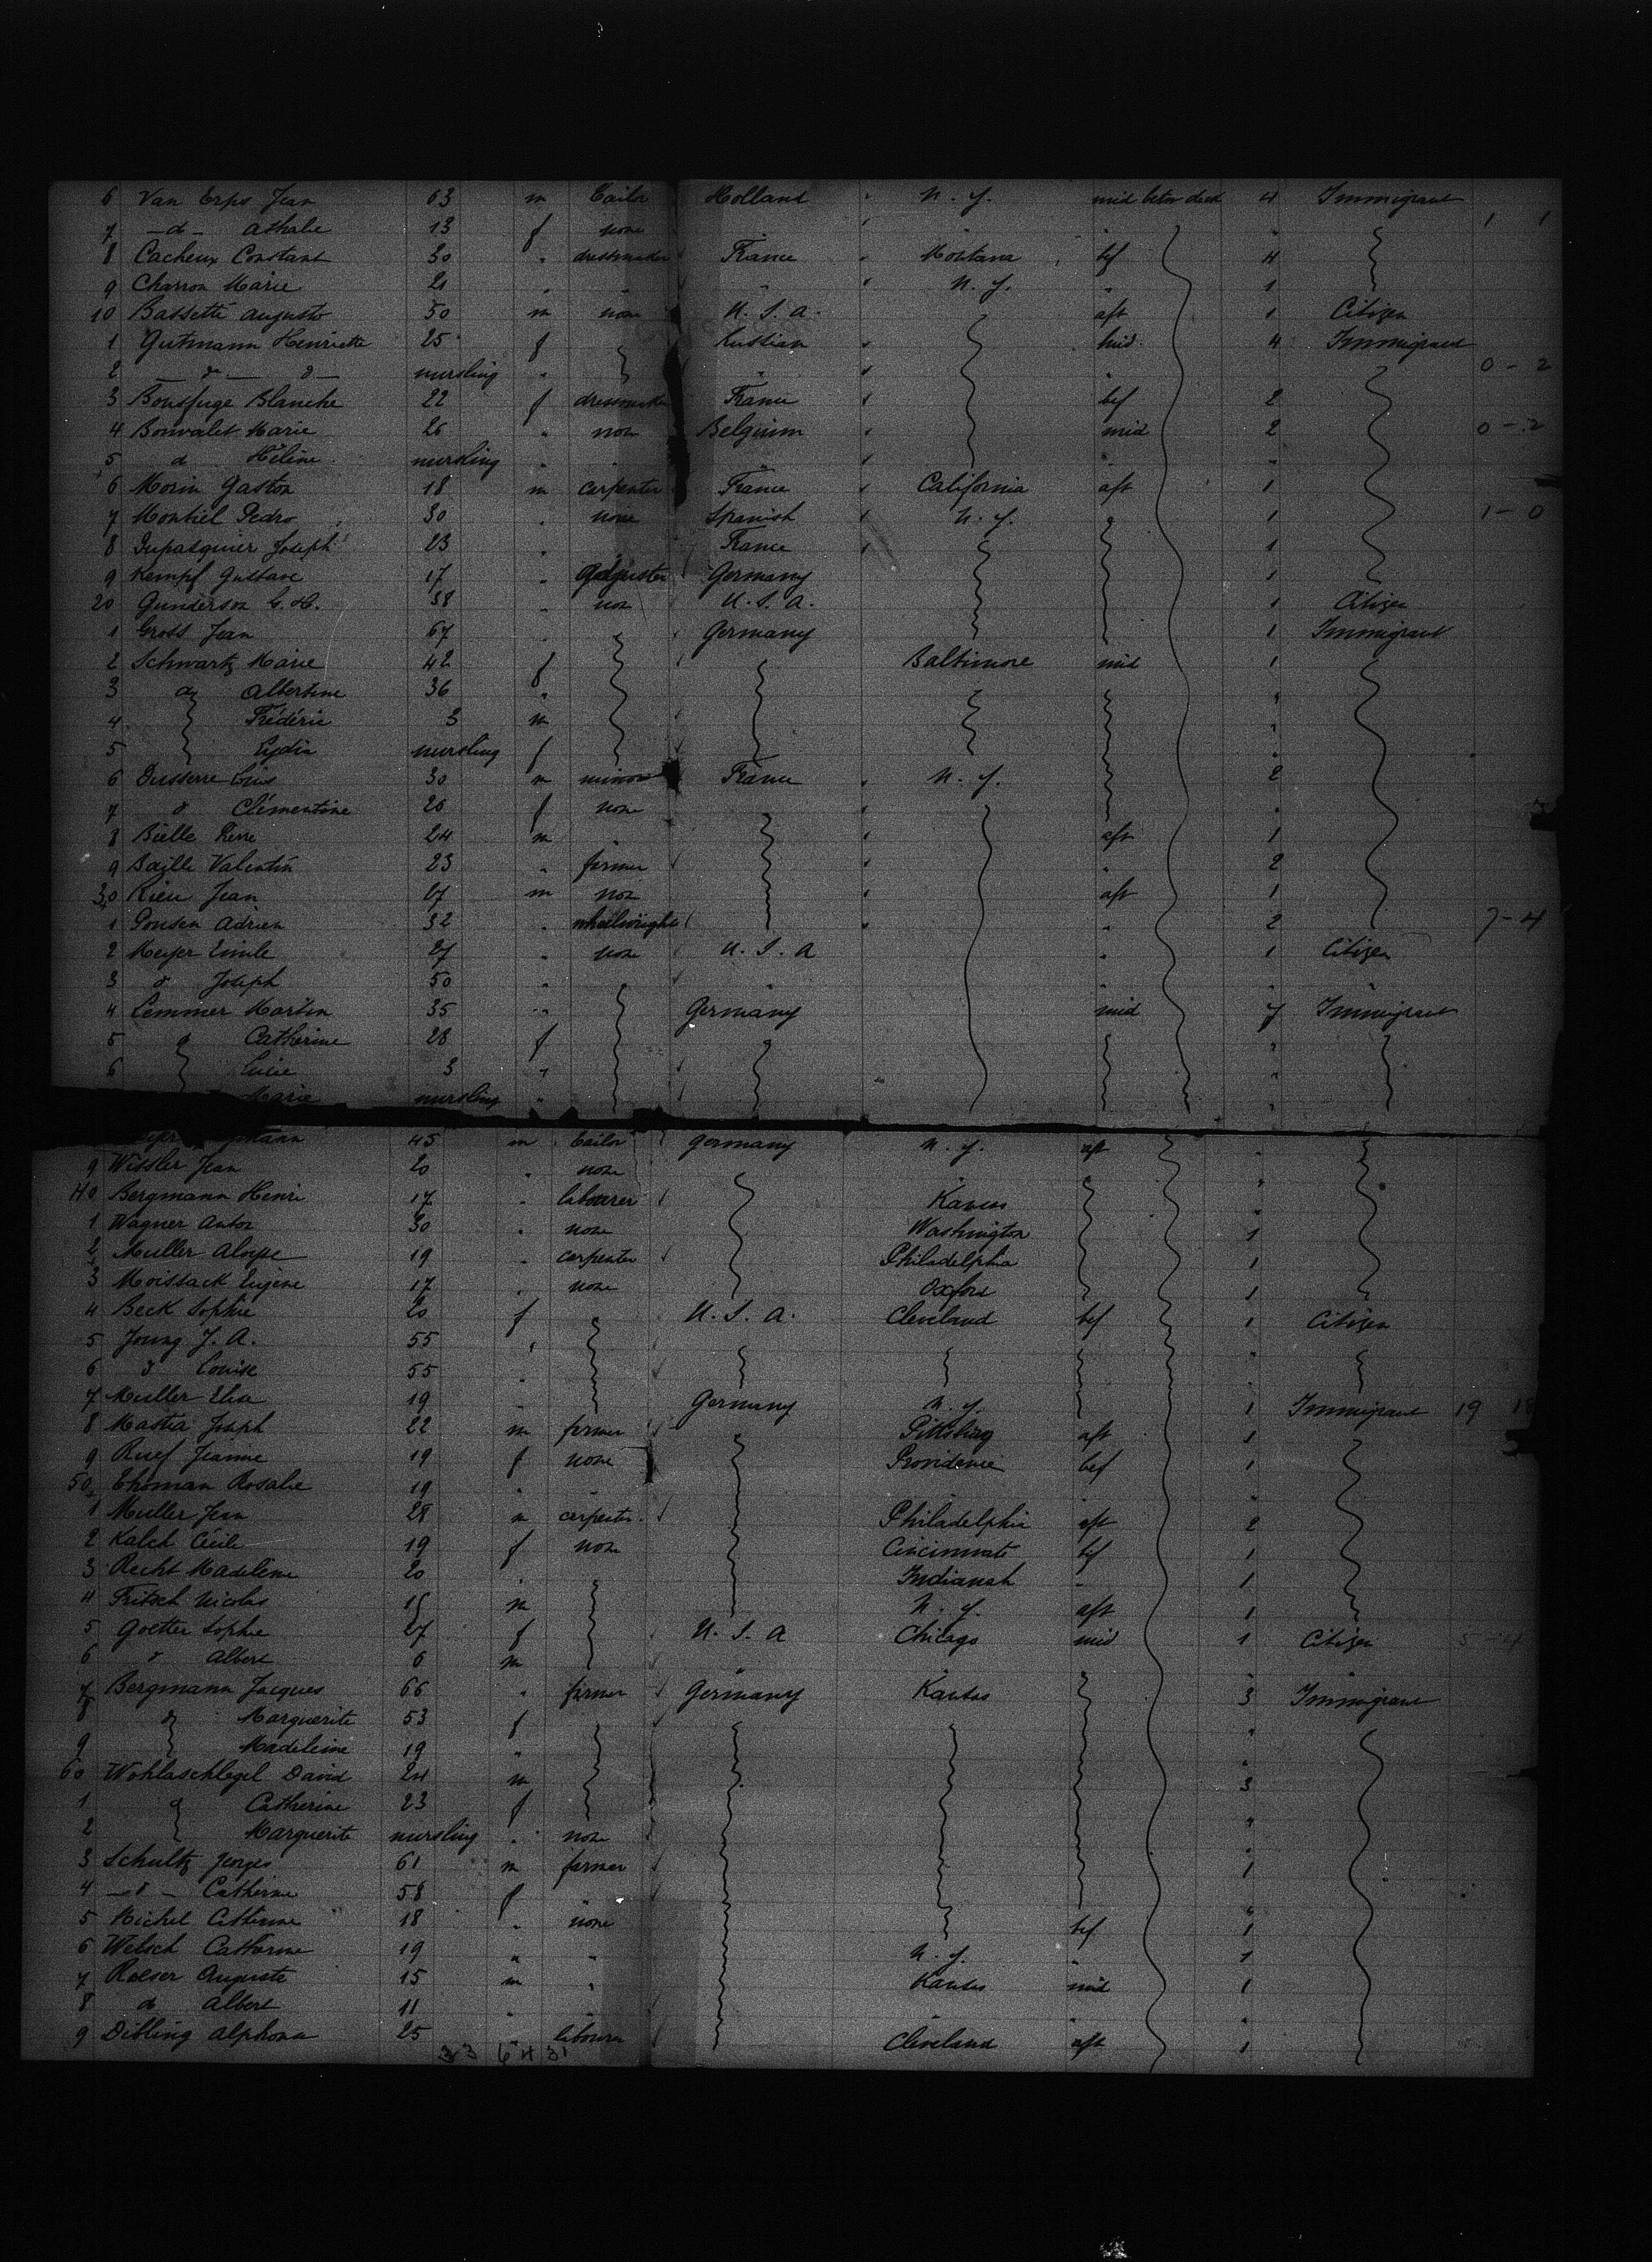 6 Van Erps Jean 63 m Tailor Holland " N. Y. mid betw deck 4 Immigrant
7 -d- Athalie 13 f none " " " " 1 1
8 Cacheux Constant 30 " dressmaker France " Montana bef 4
9 Charron Marie 21 " " " " N. Y. " 1
10 Bassetti Augusto 50 m none U. S. A. aft 1 Citizen
1 Gutmann Henriette 25 f Russian " mid 4 Immigrant
2 -d- -d- nursling " " " " 0 - 2
3 Bousfuge Blanche 22 f dressmaker France " bef 2
4 Bonvalet Marie 26 " none Belgium " mid 2 0 - 2
5 d Hélène nursling " " " " "
6 Morin Gaston 18 m carpenter France " California aft 1
7 Montiel Pedro 30 " none Spanish " N. Y. " 1 1 - 0
8 Dupasquier Joseph 23 " " France " 1
9 Kempf Gustave 17 " Adjuster Germany 1
20 Gunderson C. H. 38 " non U. S. A. 1 Citizen
1 Gross Jean 67 " Germany 1 Immigrant
2 Schwartz Marie 42 f Baltimore mid 1
3 d Albertine 36 " "
4 Frédéric 3 m "
5 Lydia nursling f "
6 Dusserre 30 m France " N. Y. 2
7 d Clémentine 26 f none "
8 Bielle Pierre 24 m " " aft 1
9 Baille Valentin 23 " farmer " " 2
30 Rieu Jean 27 m non " aft 1
1 Ponsen Adrien 32 " wheelwright " " 2 7 - 4
2 Meyer Emile 27 " none U. S. A " 1 Citizen
3 d Joseph 50 " " " " " "
4 Lemmer Martin 35 " Germany mid 7 Immigrant
5 Catherine 28 f "
6 Lucie 3 " "
Marie nursling " "
45 m Tailor Germany N. Y. aft "
9 Wissler Jean 20 " none " "
40 Bergmann Henri 17 " labourer Kansas "
1 Wagner Anton 30 " none Washington 1
2 Muller Aloyse 19 " carpenter Philadelphia 1
3 Moissack Eugène 17 " none Oxford 1
4 Beck Sophie 20 f " U. S. A. Cleveland bef 1 Citizen
5 Young J. A. 55 " "
6 d Louise 55 " "
7 Muller Elise 19 " Germany N. Y. 1 Immigrant 19
8 Mastia Joseph 22 m farmer Pittsburg aft 1
9 Ruef Jeanne 19 f none Providence bef 1
50 Ehoman Rosalie 19 " " " " "
1 Muller Jean 28 m carpenter Philadelphia aft 2
2 Kalch Cécile 19 f none Cincinnate bef 1
3 Recht Madeleine 20 " " Indianah " 1
4 Fritsch Nicolas m N. Y. aft 1
5 Goetter Sophie 27 f U. S. A Chicago mid 1 Citizen 5 - 4
6 d Albert 6 m " " " " "
7 Bergmann Jacques 66 " farmer Germany Kansas 3 Immigrant
8 d Marguerite 53 f "
9 Madeleine 19 " "
60 Wohlaschlegel David 24 m 3
1 Catherine 23 f "
2 Marguerite nursling " none "
3 Schultz Georges 61 m farmer 1
4 -d- Catherine 58 f " "
5 Michel Catherine 18 " none bef 1
6 Welsch Catherine 19 " " N. Y. " 1
7 Roeser Auguste 15 m " Kansas mid 1
8 d Albert 11 " " " " "
9 Dibling Alphonse 25 " labourer Cleveland aft 1
33 64 31